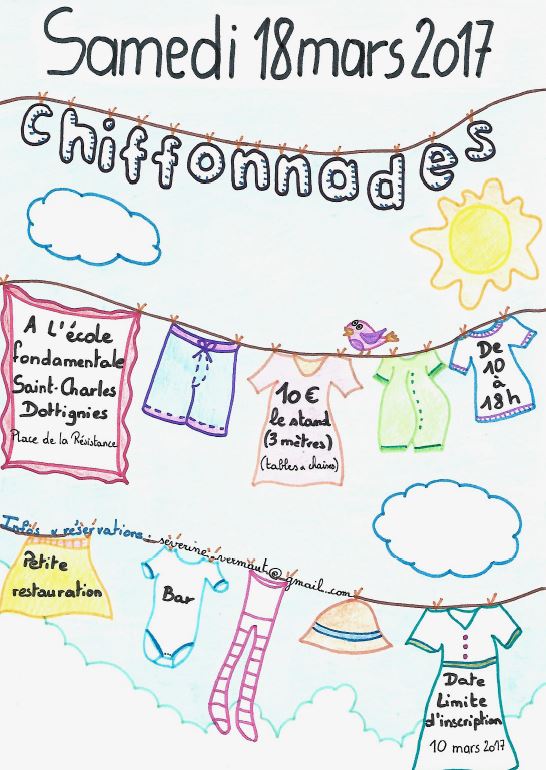 Samedi 18 mars 2017
chiffonnades
A L'école
fondamentale
Saint-Charles
Dottignies
Place de la Résistance
10 €
le stand
(3 mètres)
(tables & chaises)
De
10
à
18h
Infos & réservations : séverine-vermaut@gmail.com
Petite
restauration
Bar
Date
Limite
d'inscription
10 mars 2017